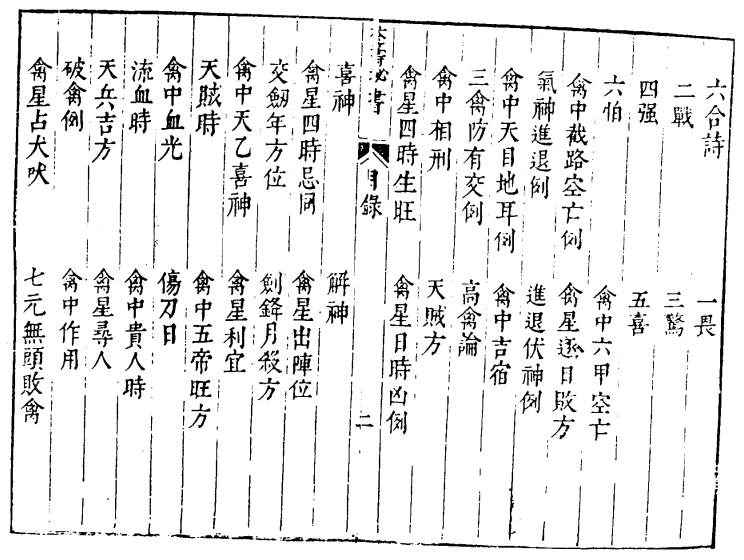 六合詩　一畏
二戰　三驚
四强　五喜
六怕　禽中六甲空亡
禽中截路空亡例　禽星逐日敗方
氣神進退例　進退伏神例
禽中天目地耳例　禽中吉宿
三禽防有交例　高禽論
禽中相刑　天賊方
禽星四時生旺　禽星日時凶例
秘書　目錄　二
喜神　解神
禽星四時忌同　禽星出陣位
交劒年方位　劍鋒月殺方
禽中天乙喜神　禽星利宜
天賊時　禽中五帝旺方
禽中血光　傷刀日
流血時　禽中貴人時
天兵吉方　禽星尋人
破禽例　禽中作用
禽星占犬吠　七元無頭敗禽